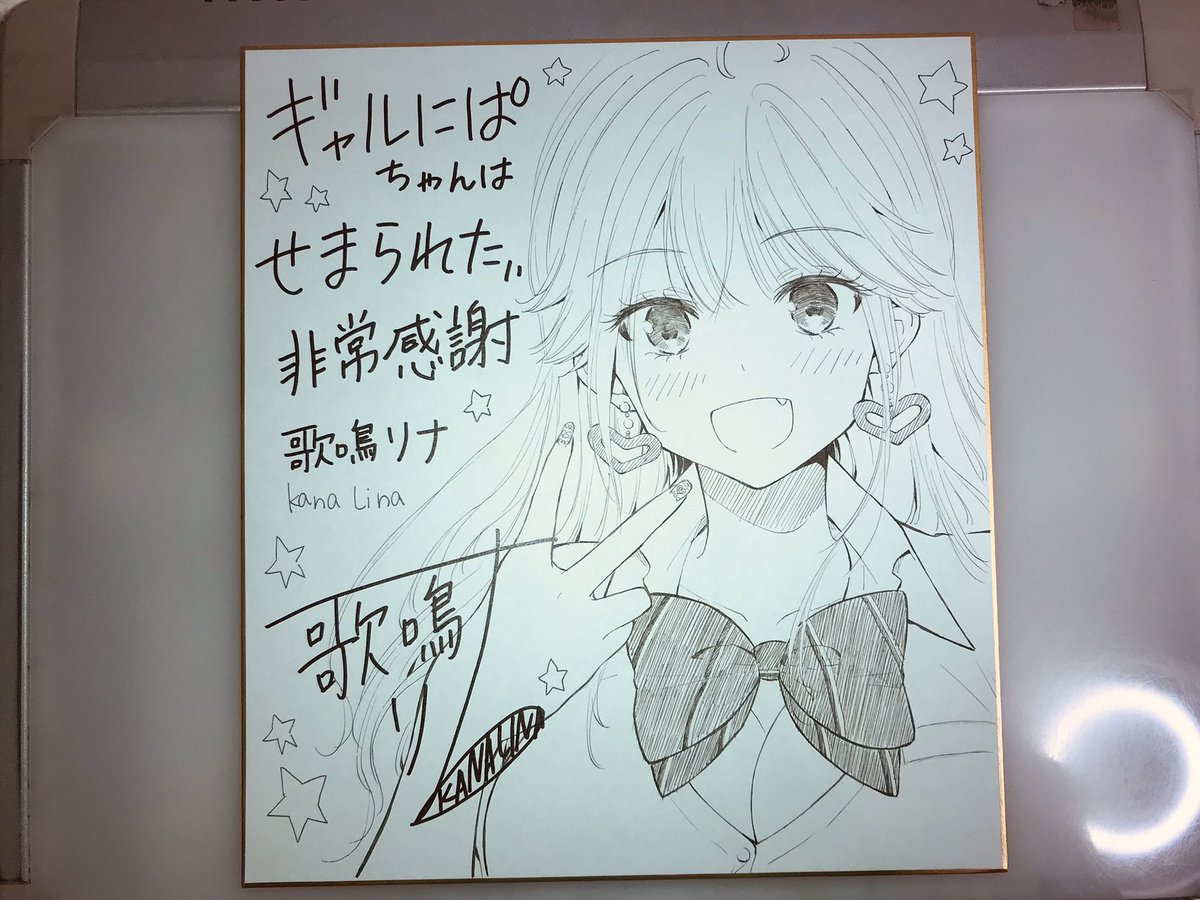 ギャルにぱ
ちゃんは
せまられたい
非常感謝
歌鳴リナ
kana Lina
歌鳴リナ
KANALINA